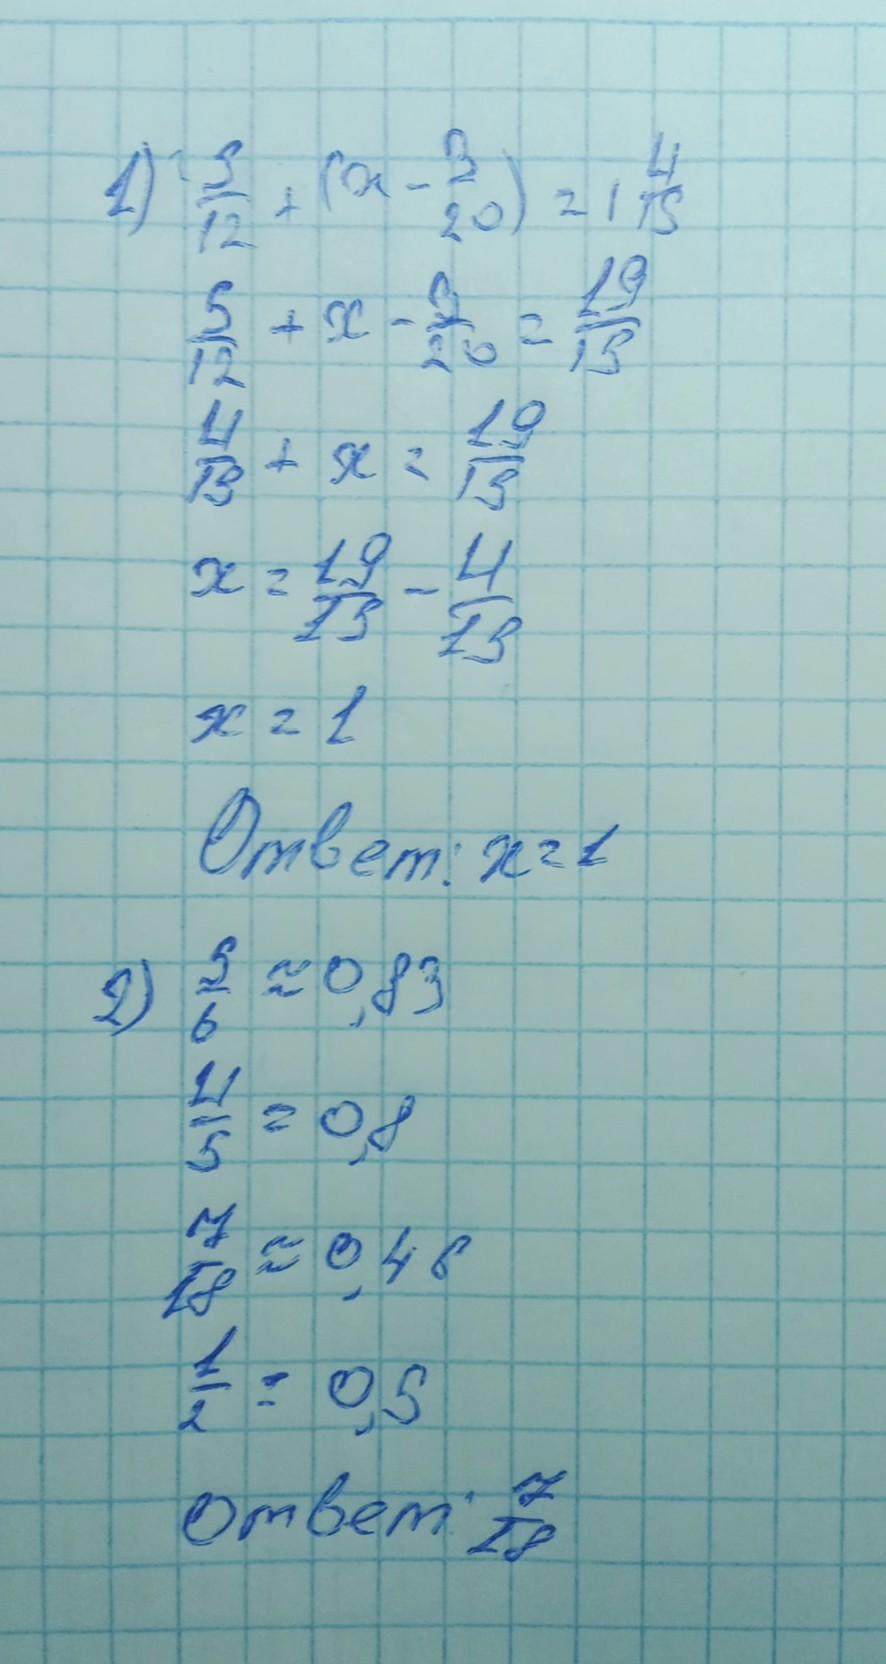 1) 5/12 + (x - 3/20) = 1 4/15
5/12 + x - 3/20 = 19/15
4/15 + x = 19/15
x = 19/15 - 4/15
x = 1
Ответ: x = 1
2) 5/6 ≈ 0,83
4/5 = 0,8
7/18 ≈ 0,46
1/2 = 0,5
Ответ: 7/18